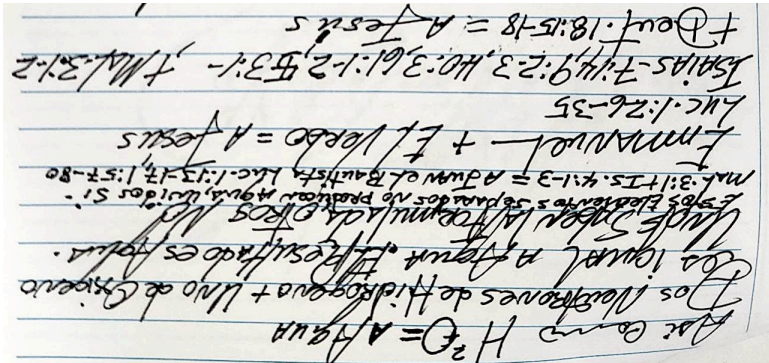 Asi como H²O = A Agua
Dos Neutrones de Hidrogeno + Uno de Oxigeno
es igual A Agua. El Resultado es
Unde la Formula de otros No
Estos Elementos separados No producen Agua, unidos Si.
Mal. 3:1 + Is. 4:1-3 = A Juan el Bautista Luc. 1:13-17, 1:57-80
Emmanuel + El Verbo = A Jesús
Luc. 1:26-35
ISAIAS-7:14, 9:2-3, 40:3, 61:1-2, 53:1- , + Mal. 3:1-2
+ Deut. 18:15-18 = A Jesús